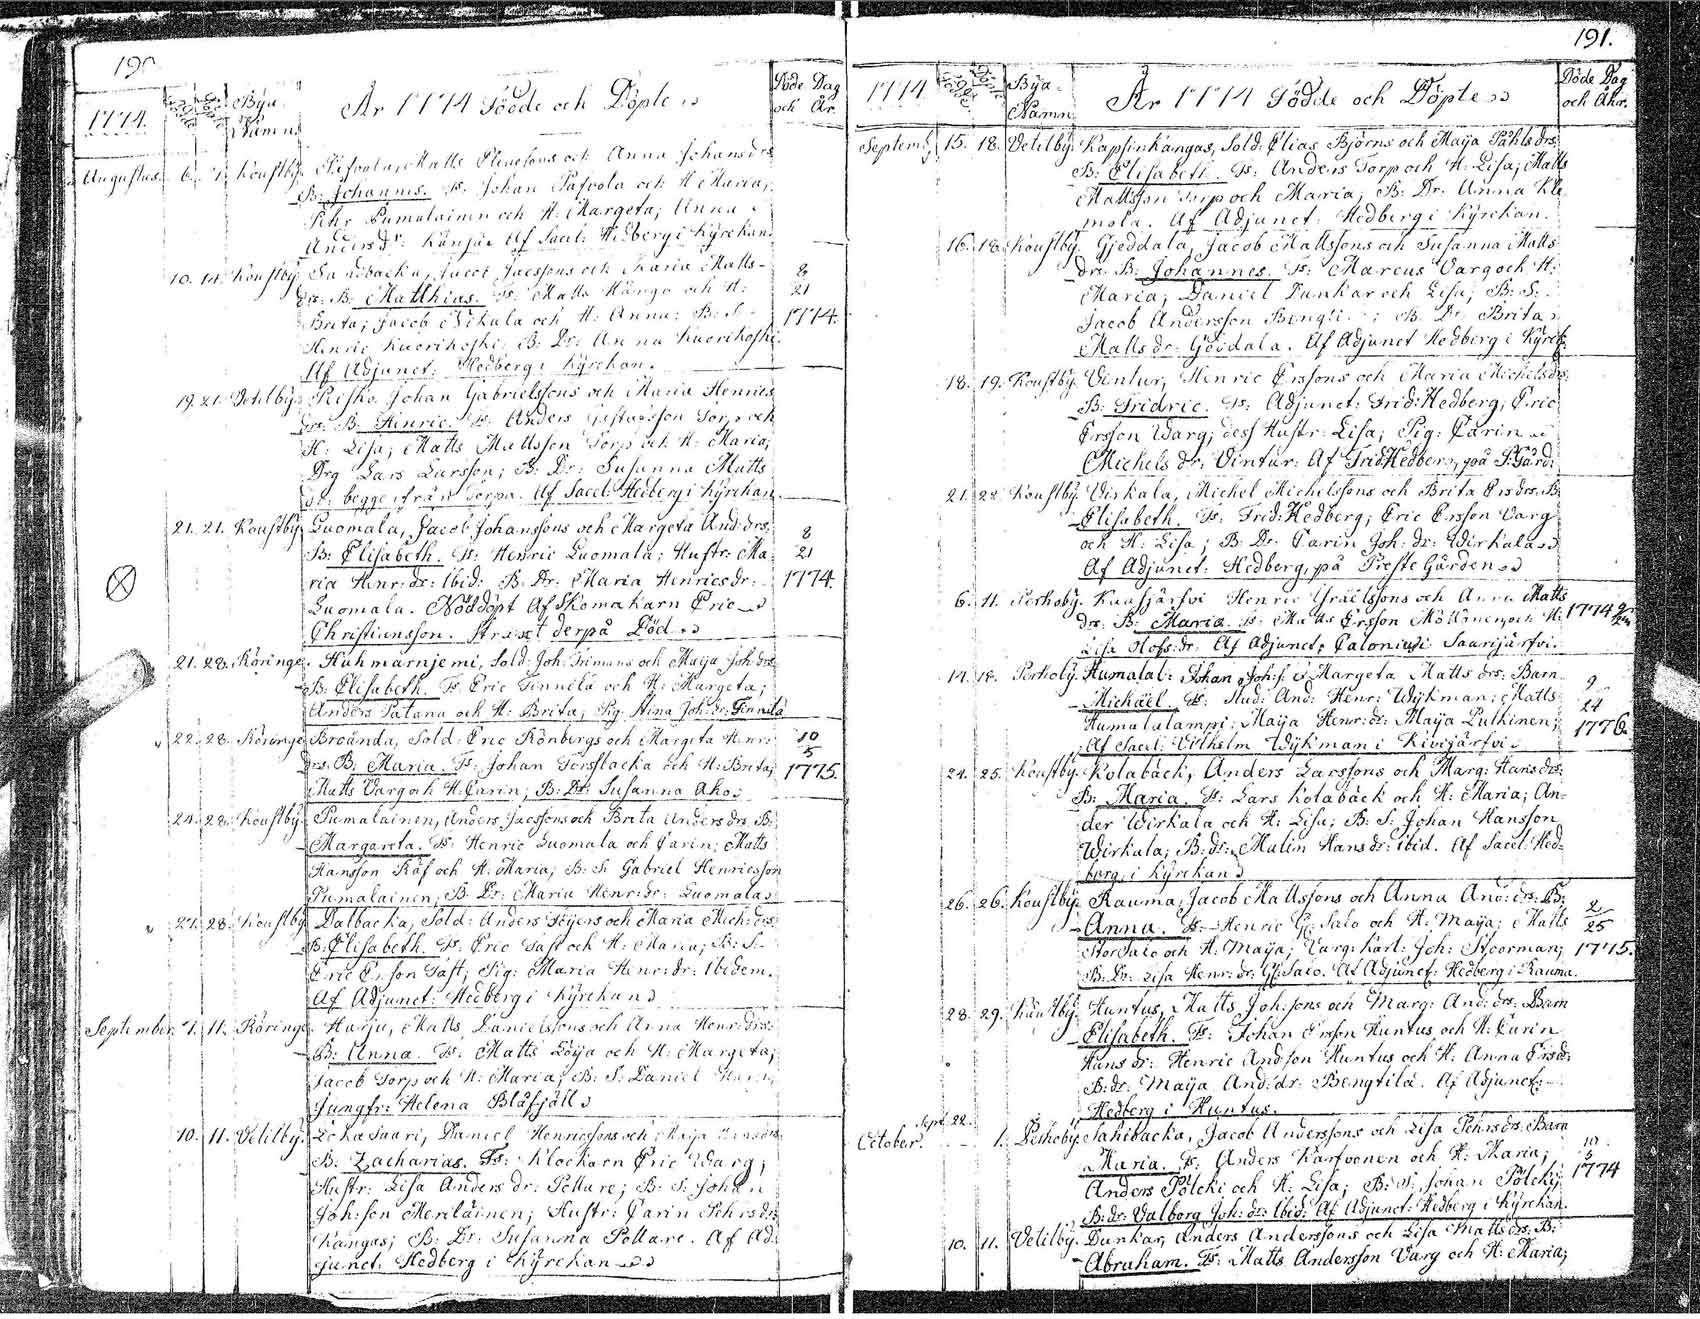 190
1774. Födde Döpte Bya Namn År 1774 Födde och Döpte Döde Dag
och År.
Augustus. 6. 7. Koustby. Matts Elinesons och Anna Johansdrs
B: Johannes. Fs. Johan Pafvola och H. Maria;
Pehr Pumalainen och H: Margeta; Anna
Andersdr: Känsä. Af Sacel: Hedberg i Kyrckan.
10. 14. Koustby. Sandbacka, Jacob Jacssons och Maria Matts- 8
drs. B: Matthias. Fs: Matts Hänga och H: 21
Brita; Jacob Nikula och H: Anna; B: S: 1774.
Henric Kuorikoski; B: Dr: Anna Kuorikoski.
Af Adjunct: Hedberg i Kyrckan.
19. 21. Vetilby. Pesko Johan Gabrielssons och Maria Henrics
drs: B: Hinric. Fs: Anders Gustafsson Torp och
H: Lisa; Matts Mattsson Torp och H: Maria;
Drg Lars Larsson; B: Dr: Susanna Matts
dr. begge ifrån Torpa. Af Sacel: Hedberg i Kyrckan.
21. 21. Koustby. Luomala, Jacob Johanssons och Margeta And:drs. 8
B: Elisabeth. Fs: Henric Luomala; Hustr: Ma: 21
ria Henr:dr: ibid: B: Dr: Maria Henricsdr: 1774.
Luomala. Nöddöpt Af Skomakarn Eric
Christiansson. straxt derpå Död.
21. 28. Röringe. Huhmarnjemi, Sold: Joh: Frimans och Maija Joh:drs
B: Elisabeth. Fs. Eric Finnilä och H: Margeta;
Anders Patana och H: Brita; Pig. Stina Joh:dr: Finnilä
22. 28. Röringe Broända, Sold: Eric Rönbergs och Margeta Henr: 10
drs. B: Maria. Fs: Johan Torsblacka och H: Brita; 5
Matts Varg och H: Carin; B: Dr: Susanna Aho. 1775.
24. 28. Koustby. Pumalainen, Anders Jacssons och Brita Anders drs. B:
Margareta. Fs: Henric Luomala och Carin; Matts
Hansson Räf och H: Maria; B: S: Gabriel Henricsson
Pumalainen; B: Dr: Maria Henr:dr: Luomala
27. 28. Koustby Dalbacka, Sold: Anders Höijers och Maria Mich:drs
B: Elisabeth. Fs: Eric Tast och H: Maria; B: S:
Eric Erson Tast; Pig: Maria Henr:dr: ibidem.
Af Adjunct: Hedberg i Kyrckan
September. 7. 11. Röringe Harju, Matts Danielssons och Anna Henr:drs:
B: Anna. Fs: Matts Löija och H: Margeta;
Jacob Torp och H: Maria; B: S: Daniel
Jungfr: Helena Blåfjäll
10. 11. Vetilby. Daniel Henricssons och Maija
B: Zacharias. Fs: Klockarn Eric Warg;
Hustr: Lisa Anders dr: Pollare; B: S: Johan
Joh:son Meriläinen; Hustr: Carin Pehrsdr:
Kangas; B: Dr: Susanna Pollare. Af Ad:
junct. Hedberg i Kyrckan
191.
1774 Födde Döpte Bya- Namn. År 1774 Födde och Döpte Döde Dag
och Åhr.
Septemb. 15. 18. Vetilby. Kapsinkangas, Sold: Elias Björns och Maija Påhlsdrs:
B: Elisabeth. Fs: Anders Torp och H: Lisa; Matts
Mattsson Torp och Maria; B: Dr: Anna Kle
mola. Af Adjunct: Hedberg i Kyrckan.
16. 18. Koustby. Gjeddala, Jacob Mattssons och Susanna Matts
drs: B: Johannes. Fs: Marcus Varg och H:
Maria; Daniel Dunkar och Lisa; B: S:
Jacob Andersson Bengti; B: Dr: Brita
Matts dr: Göddala. Af Adjunct Hedberg i Kyrck:
18. 19. Koustby. Vintur, Henric Erssons och Maria Michelsdrs:
B: Fridric. Fs: Adjunct: Frid: Hedberg; Eric
Ersson Warg; dess Hustr: Lisa; Pig: Carin
Michels dr: Vintur: Af Frid:Hedberg, på P:Gård:
21. 22. Koustby. Wirkala, Michel Michelssons och Brita Ersdrs. B:
Elisabeth. Fs: Frid: Hedberg; Eric Ersson Varg
och H: Lisa; B: Dr: Carin Joh: dr: Wirkala
Af Adjunct: Hedberg, på Preste Gården
6. 11. Perhoby. Kaasjärfvi Henric Yraelssons och Anna Matts 1774
drs: B: Maria. Fs: Matts Ersson Möttönen och H:
Lisa Olofs:dr: Af Adjunct: Calonius i Saarijärfvi.
14. 18. Perhoby. Humalal: Johan Joh:s: o Margeta Matts drs: Barn 9
Michäel. Fs: Stud: And: Henr: Wijkman; Matts 24
Humalalampi; Maija Henr:dr: Maija Pulkinen; 1776.
Af Sacel: Vilhelm Wijkman i Kivijärfvi.
24. 25. Koustby. Kolaback, Anders Larssons och Marg: Hansdrs:
B: Maria. Fs: Lars Kolaback och H: Maria; An-
der Wirkala och H: Lisa; B: S: Johan Hansson
Wirkala; B:dr: Malin Hansdr: ibid. Af Sacel: Hed-
berg i Kyrckan
26. 26. Koustby Rauma, Jacob Mattssons och Anna And: drs: B: 2
Anna. Fs: Henric G: Salo och H: Maija; Matts 25
Stor Salo och H: Maija; Varg: karl: Joh: Stoorman; 1775.
B: Dr: Lisa Henr: dr: G: Salo. Af Adjunct: Hedberg i Rauma.
28. 29. Koustby Huntus, Matts Joh:sons och Marg: And: drs: Barn
Elisabeth. Fs: Johan Ersson Huntus och H: Carin
Hans dr: Henric Andson Huntus och H: Anna Ersdr:
B: dr: Maija And: dr: Bengtilä. Af Adjunct:
Hedberg i Huntus.
Sept. 22.
October. 1. Perhoby. Sahibacka, Jacob Anderssons och Lisa Pehrsdrs: Barn 10
Maria. Fs: Anders Karfvonen och H: Maria; 5
Anders Pölcki och H: Lisa; B: S: Johan Pölcky; 1774
B: dr: Valborg Joh: dr: ibid: Af Adjunct: Hedberg i Kyrckan.
10. 11. Vetilby. Dunkar, Anders Anderssons och Lisa Matts drs: B:
Abraham. Fs: Matts Andersson Varg och H: Maria;